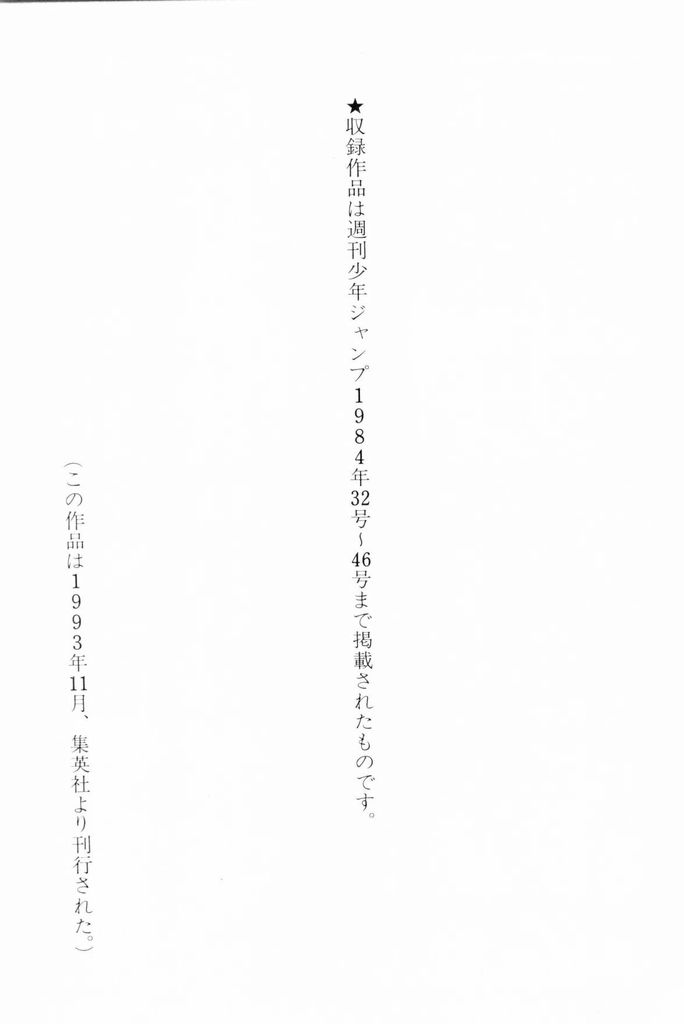 ★収録作品は週刊少年ジャンプ1984年32号~46号まで掲載されたものです。
(この作品は1993年11月、集英社より刊行された。)